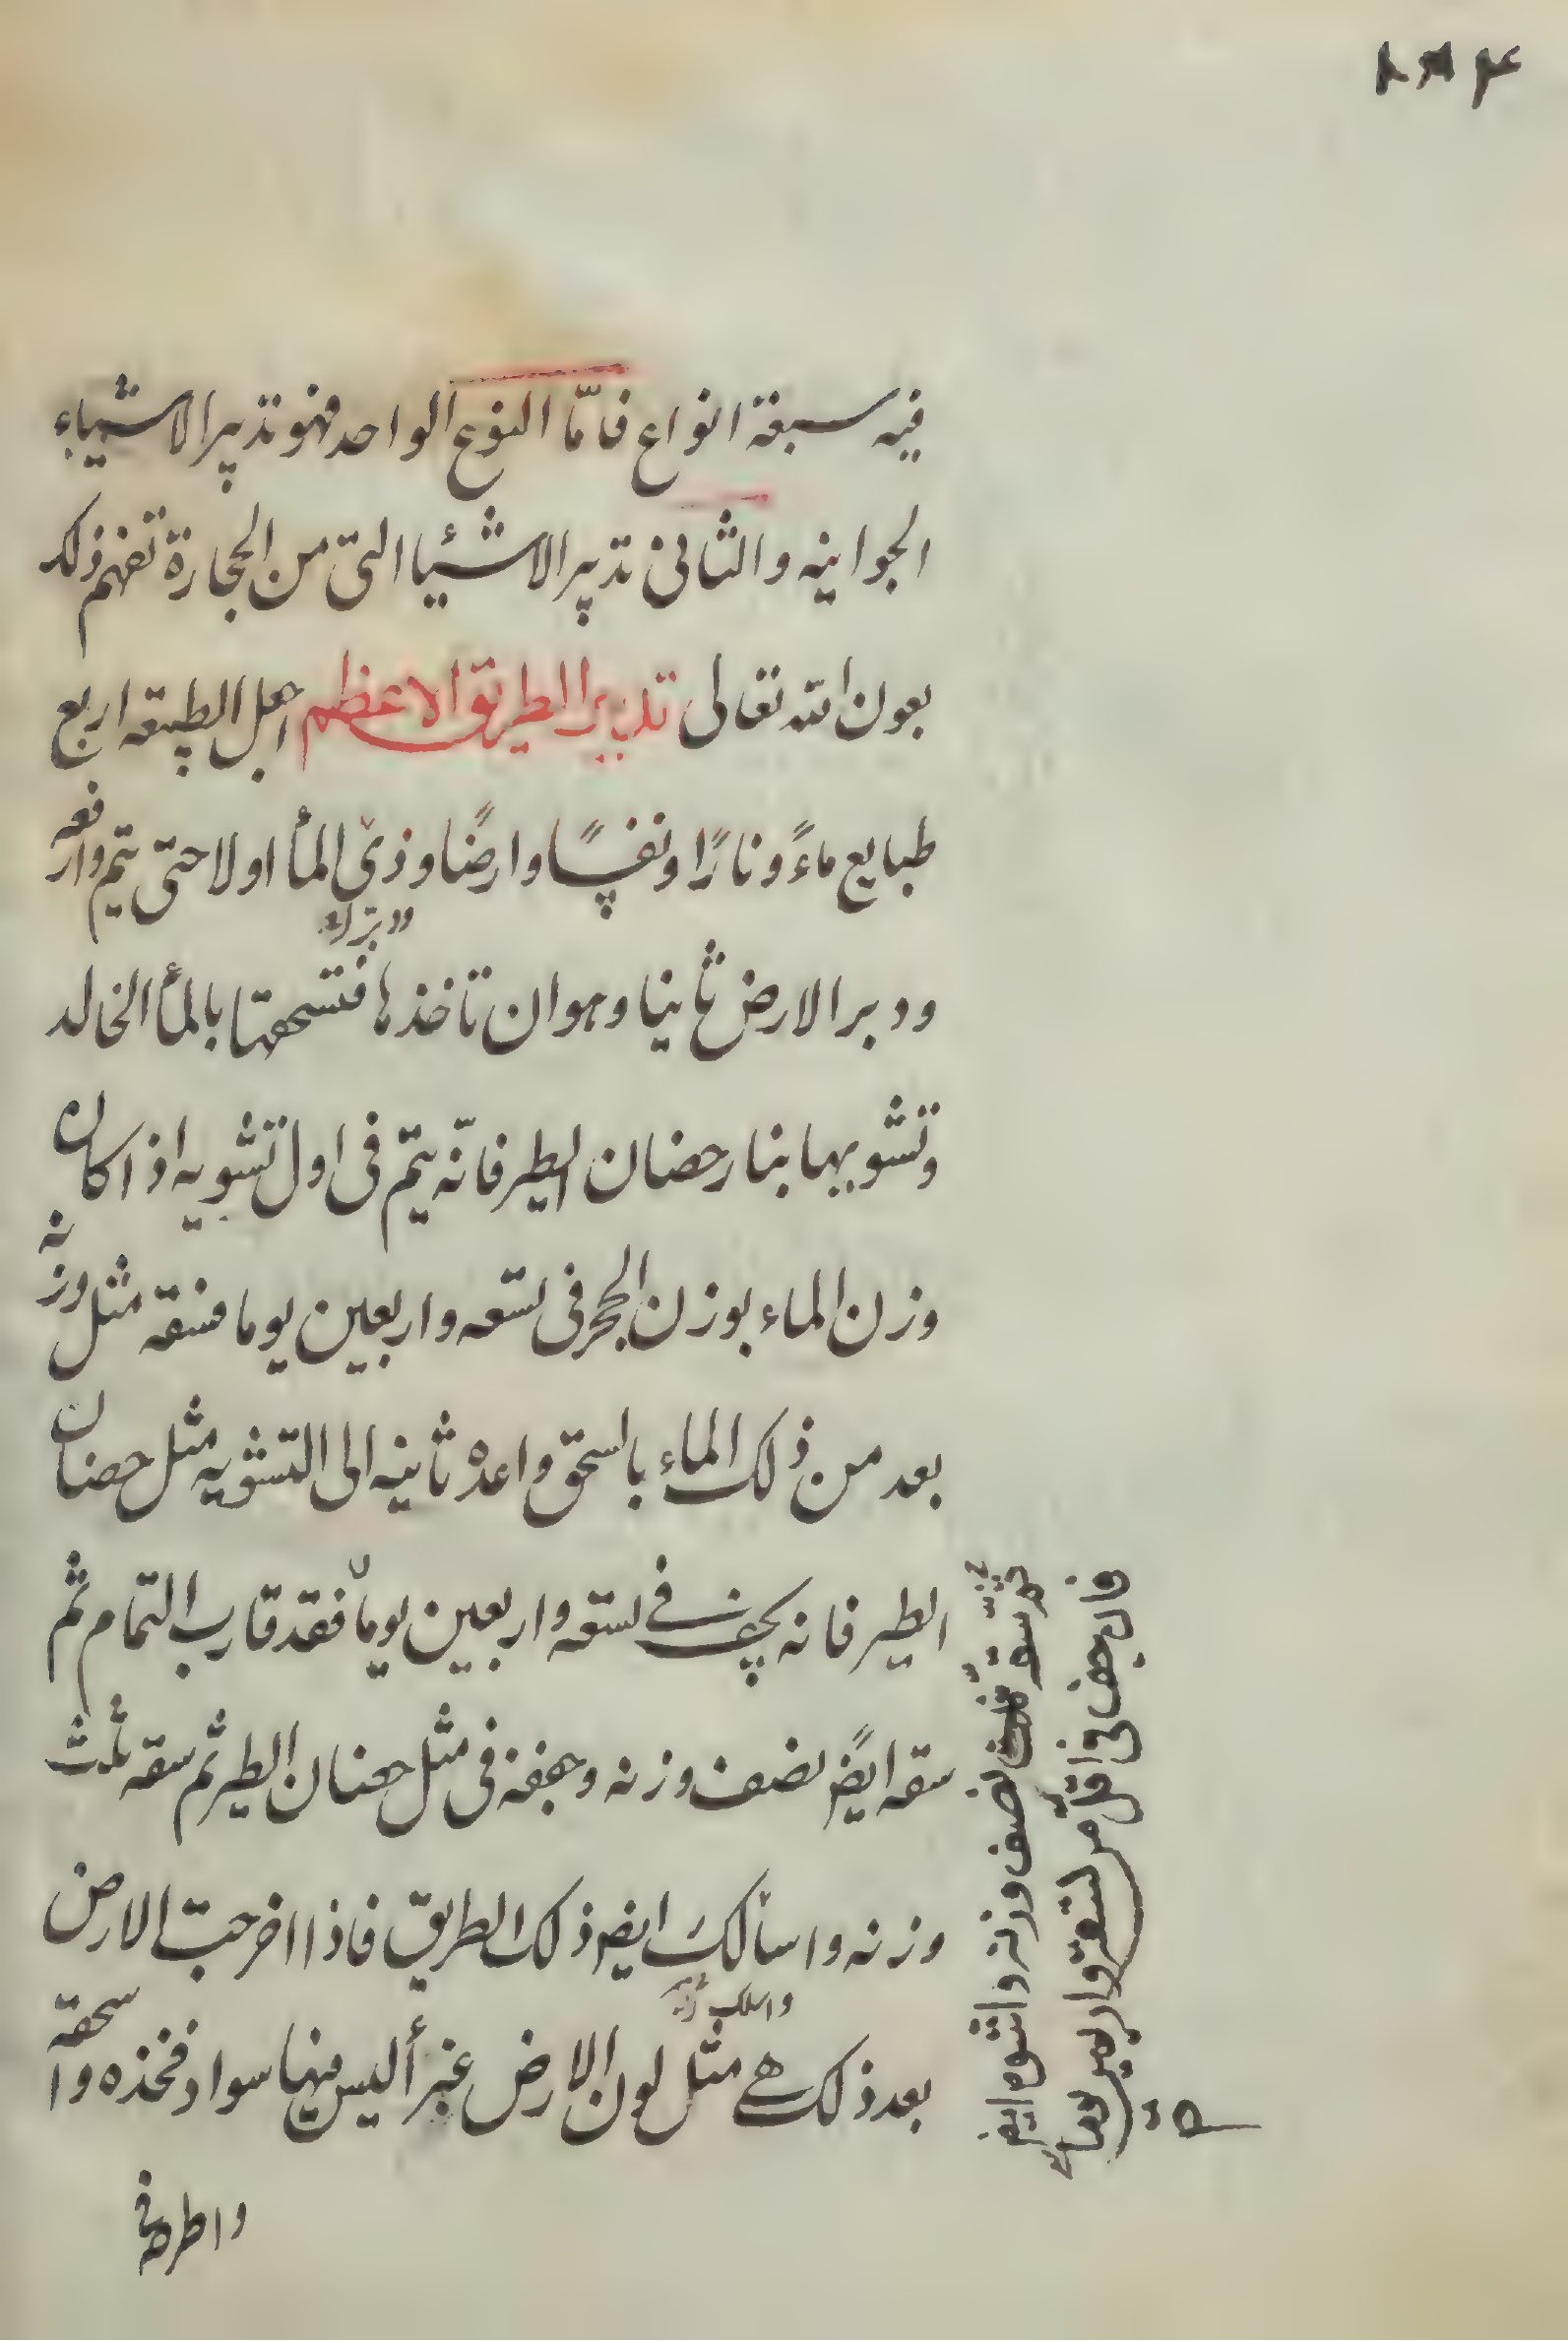 فيه سبعة انواع فامّا النوع الواحد فهو تدبير الاشياء
الجوانيه والثانى تدبير الاشيا التى من الحجارة تفهم ذلك
بعون الله تعالى تدبير الطريق الاعظم اجعل الطبيعه اربع
طبايع ماءً ونارًا ونفسًا وارضًا وذى المأ اولا حتى يتم وارفعه
ودبر الارض ثانيا وهو ان تاخذها فتسحقها بالمأ الخالد
وتشويها بنار حضان الطير فانّه يتمّ فى اول تشويه اذا كان
وزن الماء بوزن الحجر فى تسعه واربعين يوما فسقه مثل وزنه
بعد من ذلك الماء بالسحق واعده ثانيه الى التشويه مثل حضان
الطير فانه يجف فى تسعه واربعين يوماً فقد قارب التمام ثم
سقه ايضً نصف وزنه وجففه فى مثل حضان الطير ثم سقه ثلث
وزنه واسالك ايض ذلك الطريق فاذا اخرجت الارض
بعد ذلك هى مثل لون الارض غبرأ ليس فيها سواد فخذه واسحقه
واسلك
واطرحه فى
ثم سقه نصف وزنه واشوه ايض
فان جف فى اقل من تسعة واربعين يوما